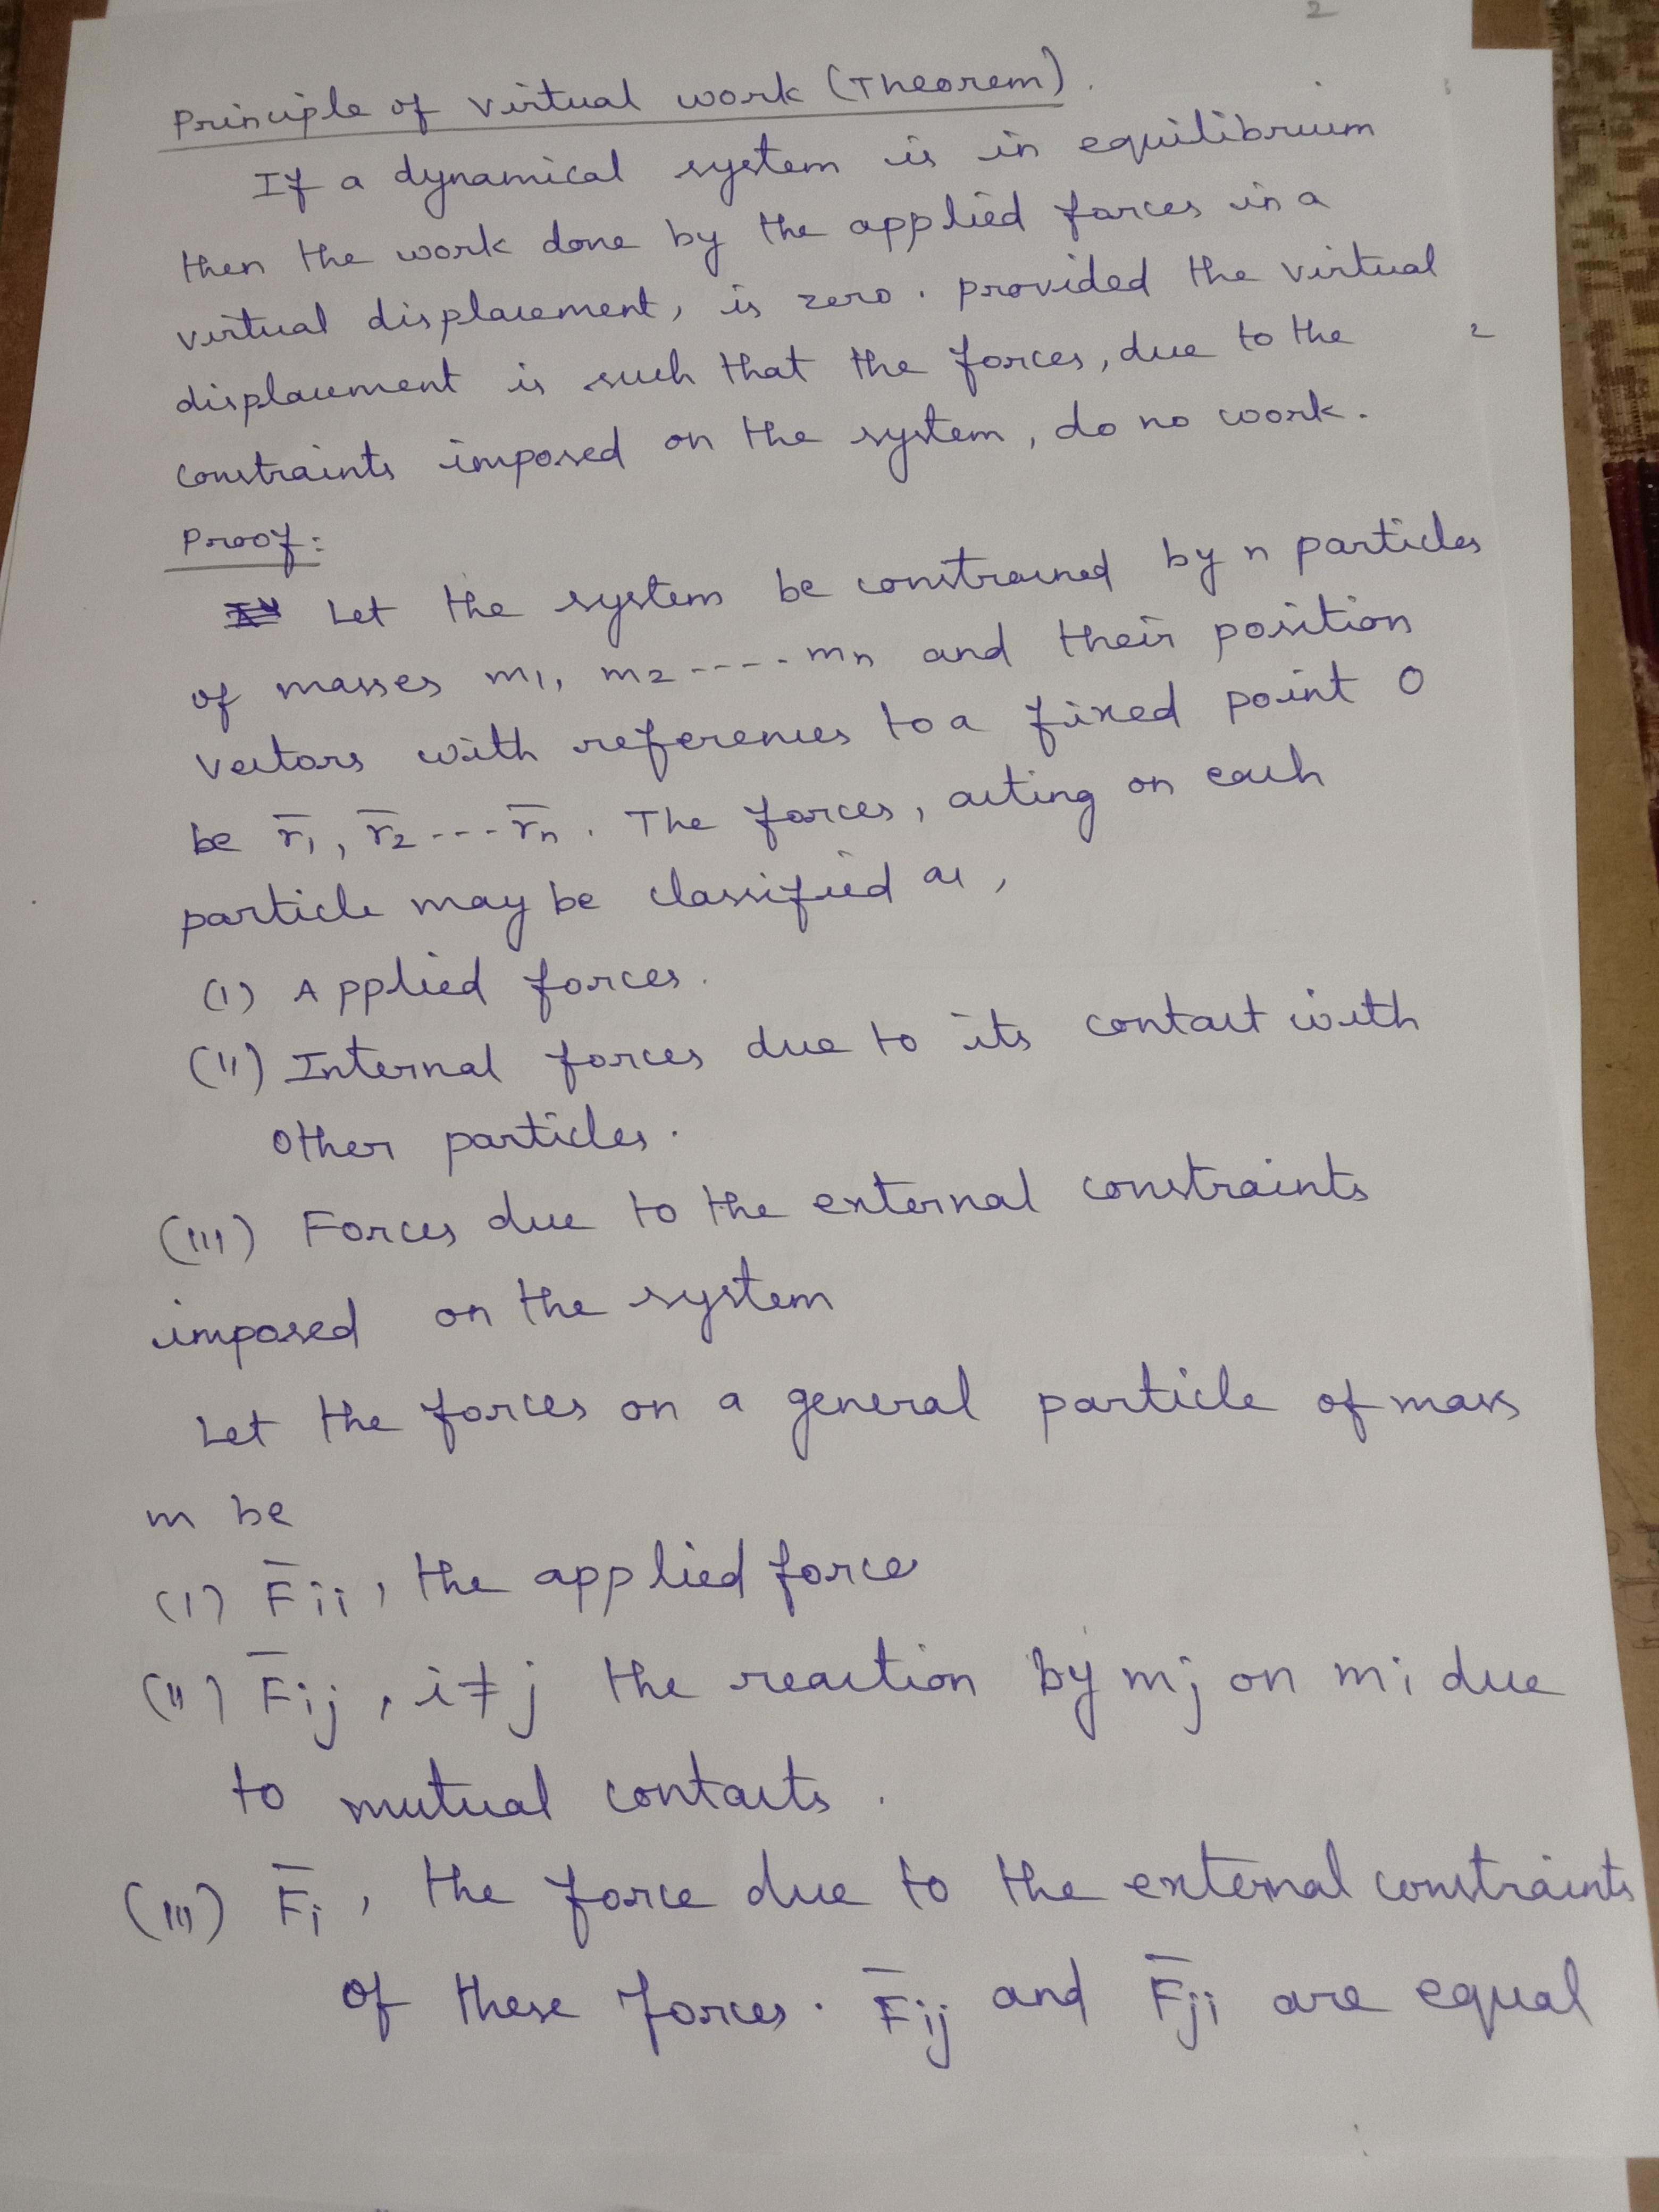 2
Principle of virtual work (Theorem).
If a dynamical system is in equilibrium
then the work done by the applied forces in a
virtual displacement, is zero. provided the virtual
displacement is such that the forces, due to the
2
constraints imposed on the system, do no work.
Proof:
Let the system be constrained by n particles
of masses m1, m2 ---- mn and their position
vectors with references to a fixed point O
be r̅1, r̅2 --- r̅n. The forces, acting on each
particle may be classified as,
(i) Applied forces.
(ii) Internal forces due to its contact with
other particles.
(iii) Forces due to the external constraints
imposed on the system
Let the forces on a general particle of mass
m be
(i) F̅ii, the applied force
(ii) F̅ij, i≠j the reaction by mj on mi due
to mutual contacts.
(iii) F̅i, the force due to the external constraints
of these forces. F̅ij and F̅ji are equal